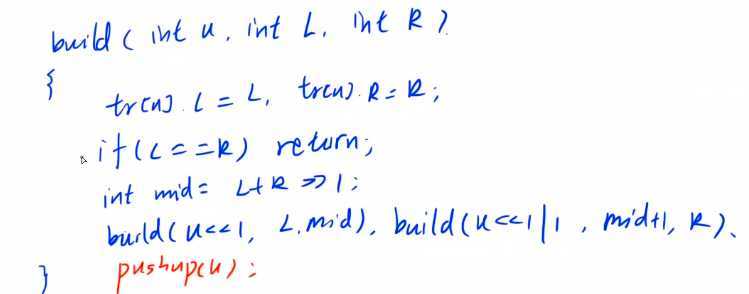 build ( int u, int L, int R )
{
tr[u].L = L, tr[u].R = R;
if (L == R) return;
int mid = L+R >> 1;
build(u<<1, L, mid), build(u<<1|1, mid+1, R).
pushup(u);
}